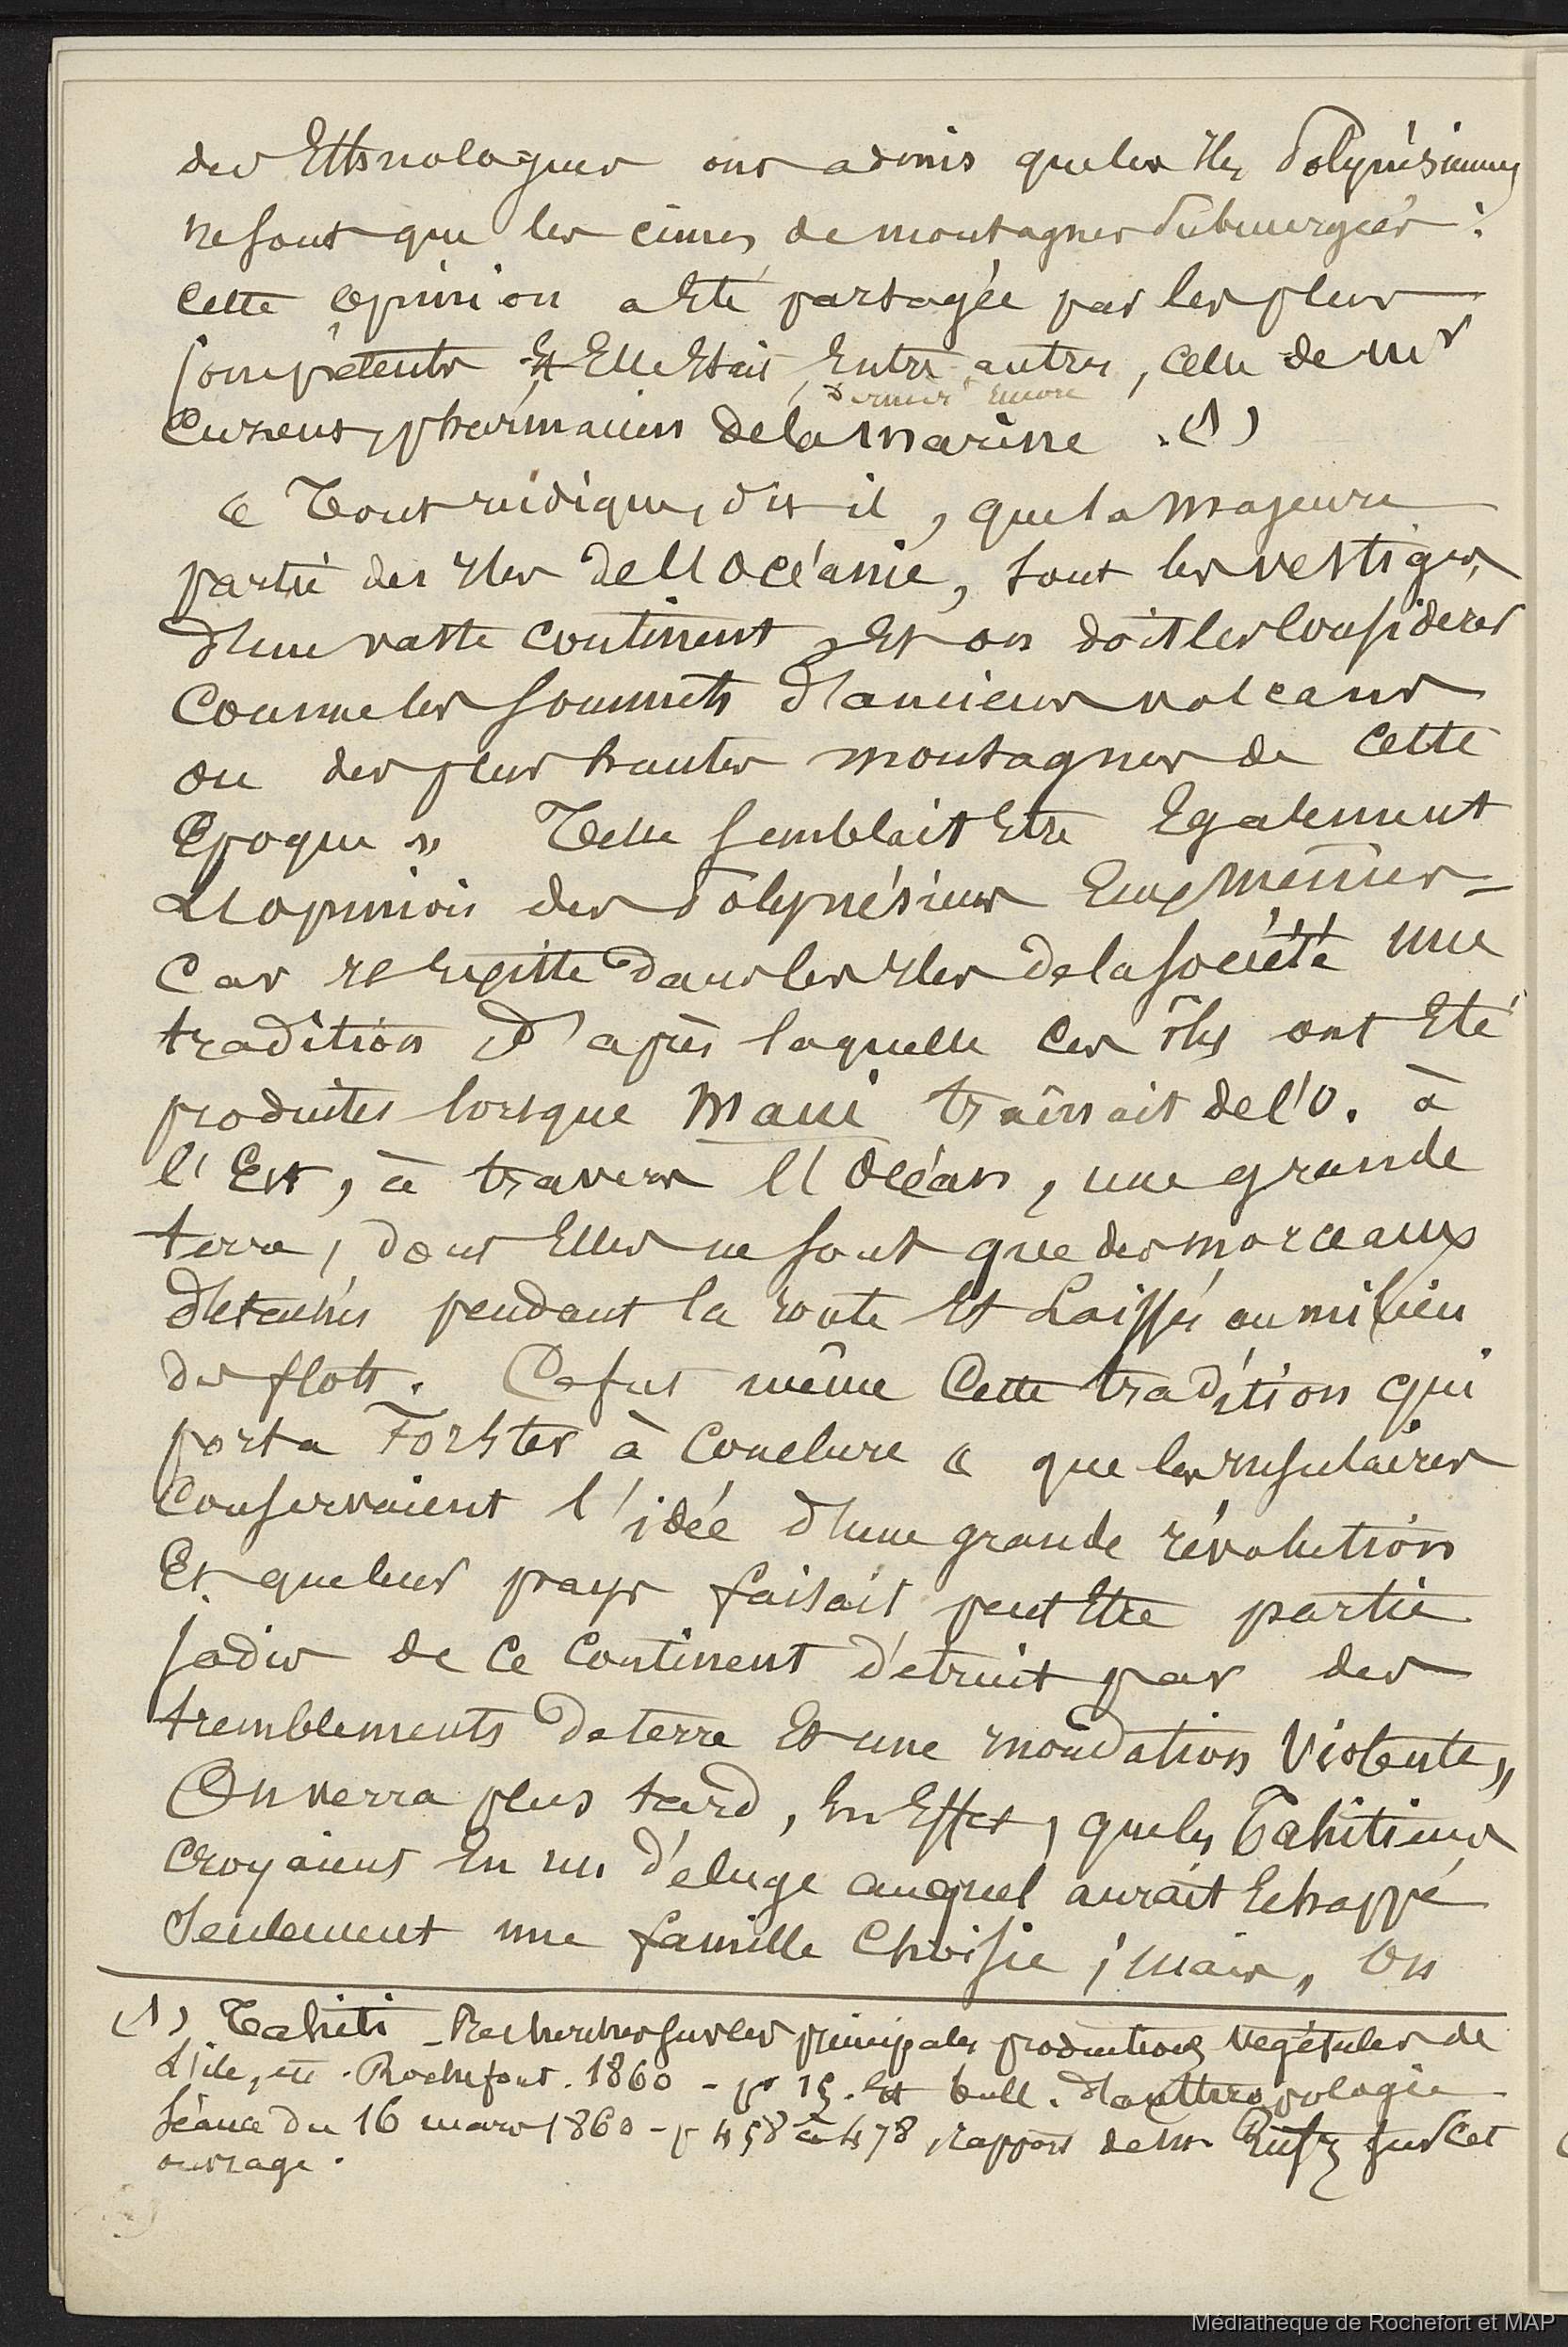 des Ethnologues ont admis que les Iles Polynésiennes
ne sont que les cimes de montagnes submergées :
cette opinion a Eté partagée par les plus
compétents Et Elle Etait, Entre autres, celle de Mr
dernier encore
Cuzent, pharmacien de la marine. (1)
« Tout indique, dit il, que la majeure
partie des Iles de l'Océanie, sont les vestiges
d'un vaste continent, Et on doit les considérer
comme les sommets d'anciens volcans
ou des plus hautes montagnes de cette
Epoque » Telle semblait Etre Egalement
L'opinion des Polynésiens Eux mêmes –
Car Il Existe dans les Iles de la Société une
tradition d'après laquelle ces îles ont Eté
produites lorsque Maui traînait de l'O. à
l'Est, à travers l'Océan, une grande
terre, dont Elles ne sont que des morceaux
détachés pendant la route Et Laissés au milieu
des flots. Ce fut même cette tradition qui
porta Forster à conclure « que les insulaires
conservaient l'idée d'une grande révolution
Et que leur pays faisait peut Etre partie
jadis de ce continent détruit par des
tremblements de terre Et une inondation violente »
On verra plus tard, En Effet, que les Tahitiens
croyaient En un déluge auquel aurait Echappé
Seulement une famille choisie ; mais, on
(1) Tahiti – Recherches sur les principales productions végétales de
L'île, etc. Rochefort. 1860 – p. 15. Et bull. d'anthropologie
Séance du 16 mars 1860 – p 458 à 478, rapport de Mr Rufz sur cet
ouvrage.
Médiathèque de Rochefort et MAP